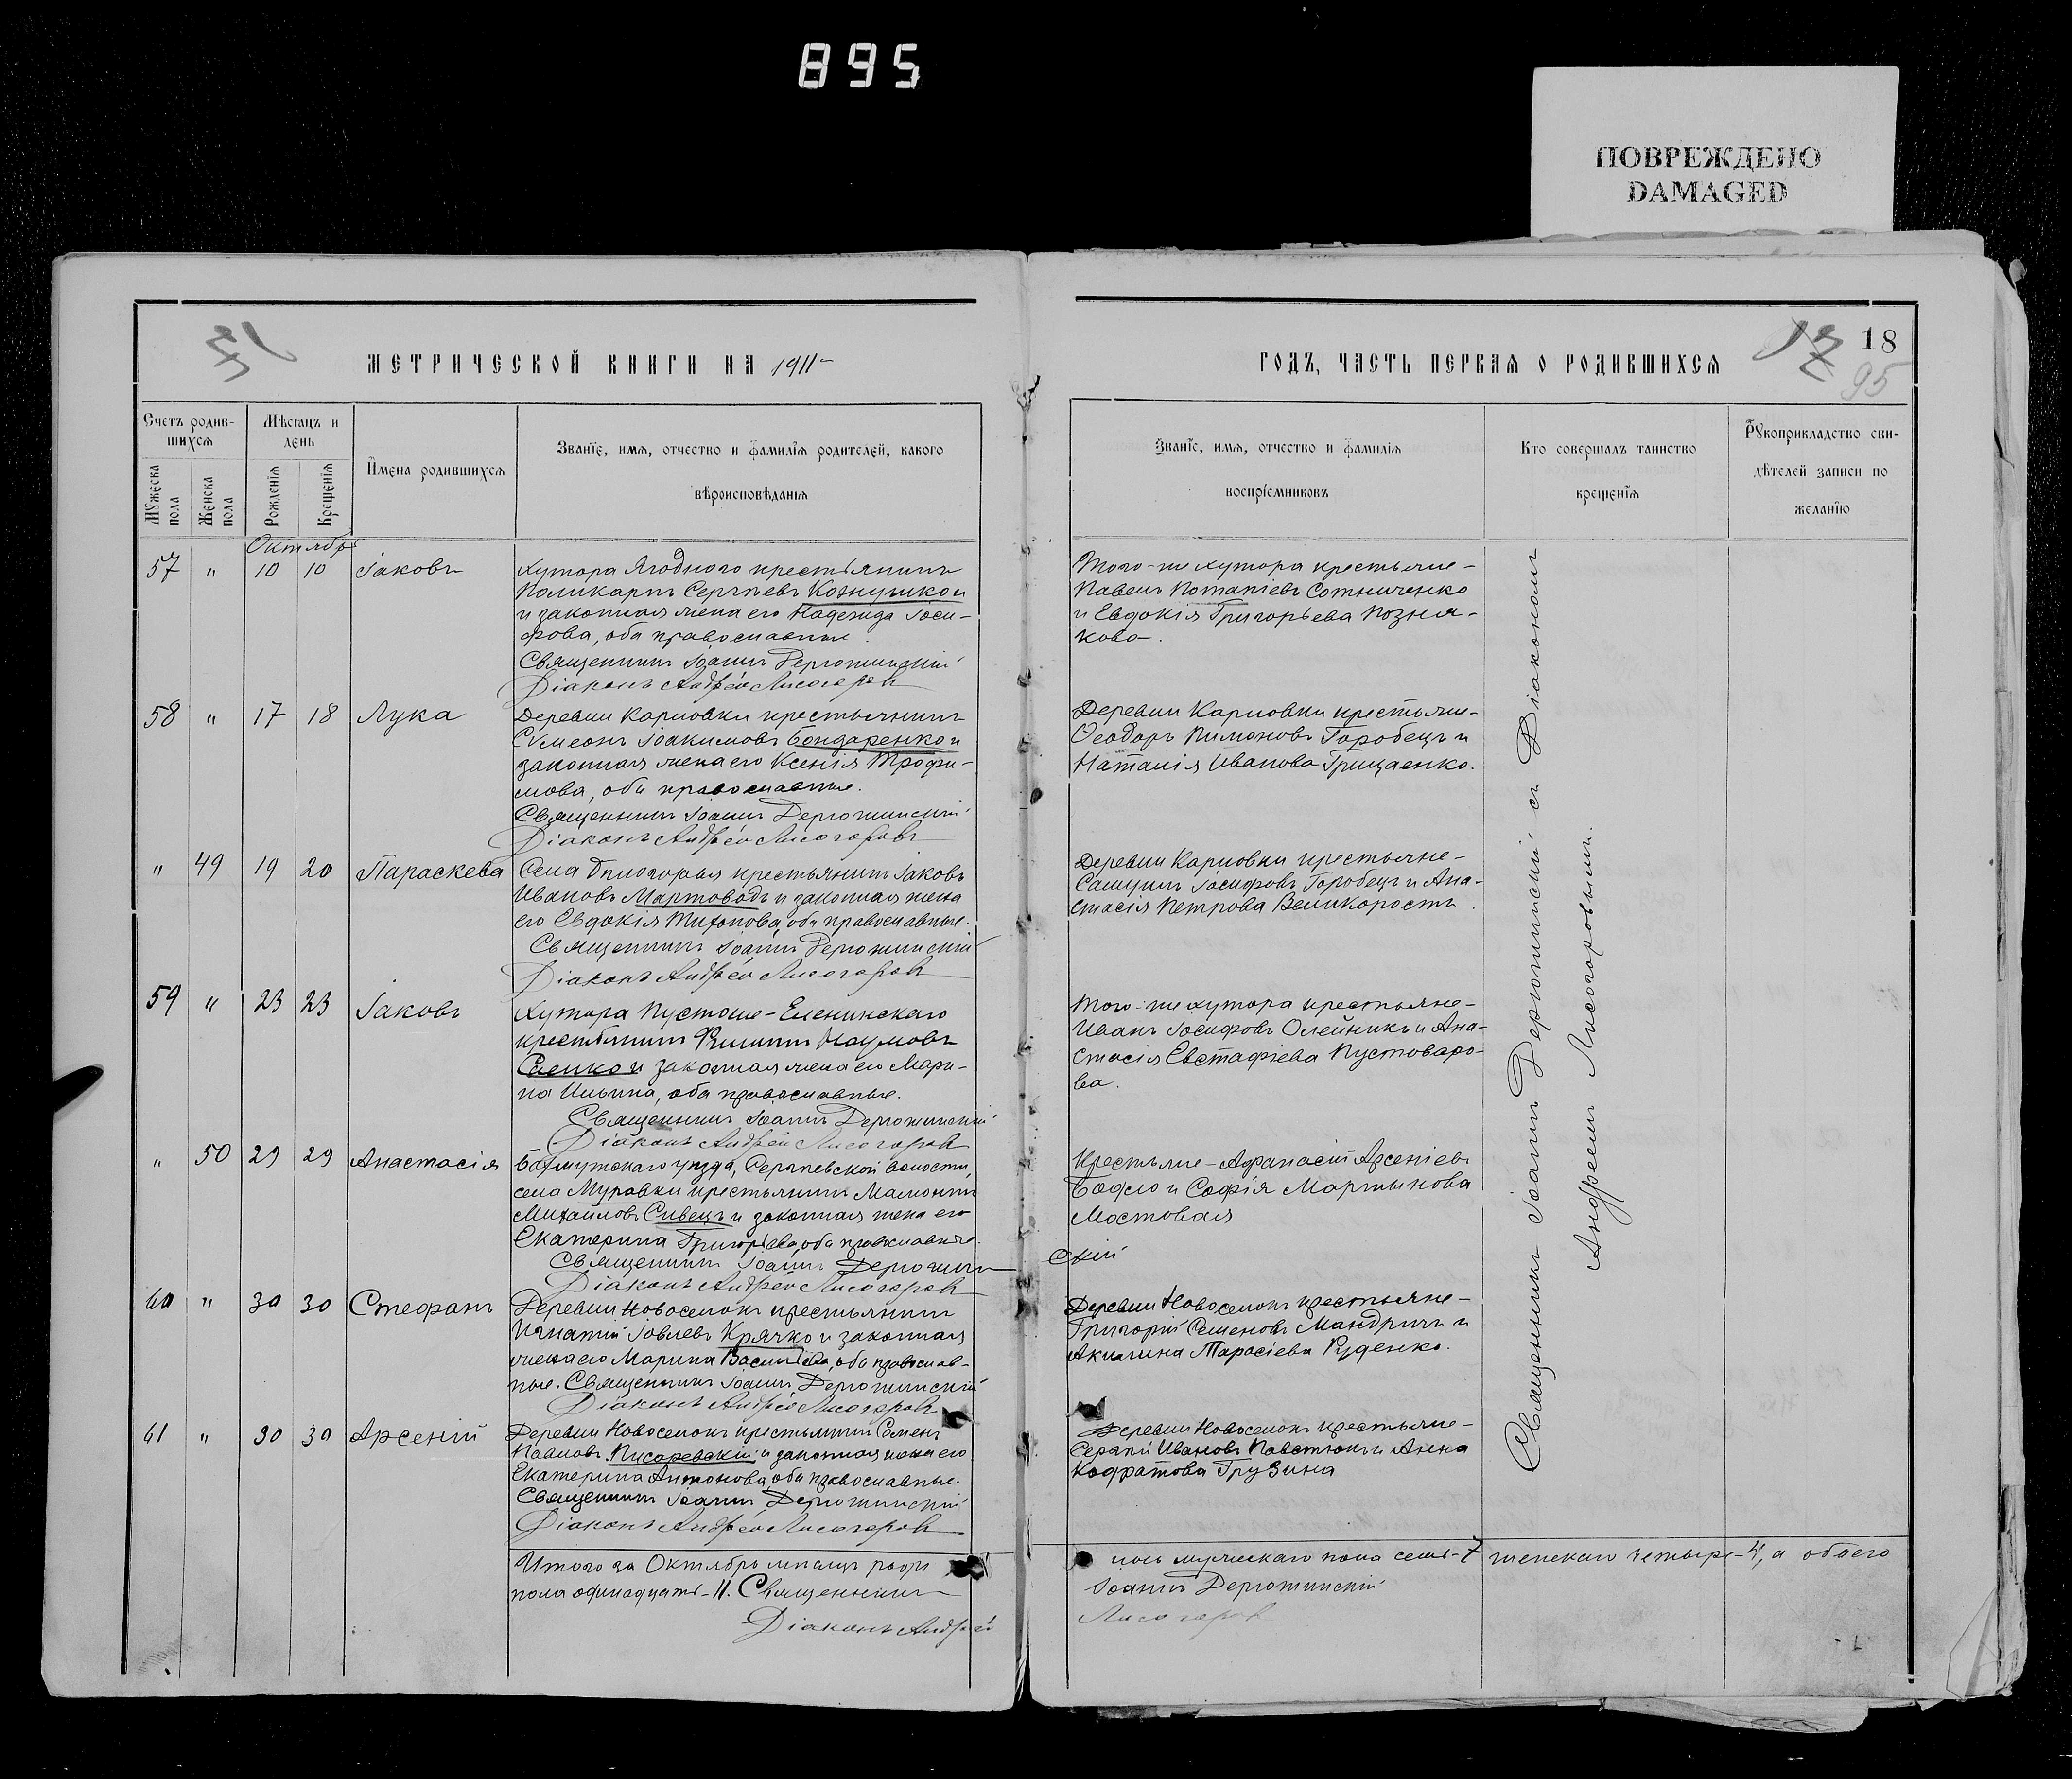 895
ПОВРЕЖДЕНО
DAMAGED
МЕТРИЧЕСКОЙ КНИГИ НА 1911
Счетъ родившихся
Мѣсяцъ и день
Имена родившихся
Званіе, имя, отчество и фамилія родителей, какого
вѣроисповѣданія
Мужеска пола
Женска пола
Рожденія
Крещенія
Октябрь
57 " 10 10 Іаковъ
Хутора Ягоднаго крестьянинъ
Поликарпъ Сергѣевъ
и законная жена его Надежда Іоси-
фова, оба православные.
Священникъ Іоаннъ Дерюжинскій
Діаконъ Андрей Лисогоровъ
58 " 17 18 Лука
Деревни Карповки крестьянинъ
Сѵмеонъ Іоакимовъ Бондаренко и
законная жена его Ксенія Трофи-
мова, оба православные.
Священникъ Іоаннъ Дерюжинскій
Діаконъ Андрей Лисогоровъ
" 49 19 20 Параскева
Села крестьянинъ Іаковъ
Ивановъ Мартоводъ и законная жена
его Евдокія Тихонова, оба православные.
Священникъ Іоаннъ Дерюжинскій
Діаконъ Андрей Лисогоровъ
59 " 23 23 Іаковъ
Хутора Пустоше-Еленинскаго
крестьянинъ Филиппъ Наумовъ
Саенко и законная жена его Мари-
на Ильина, оба православные.
Священникъ Іоаннъ Дерюжинскій
Діаконъ Андрей Лисогоровъ
" 50 29 29 Анастасія
Бахмутскаго уѣзда, Сергѣевской волости,
села Муравки крестьянинъ Мамонтъ
Михайловъ Сивецъ и законная жена его
Екатерина Григоріева, оба православные.
Священникъ Іоаннъ Дерюжин
Діаконъ Андрей Лисогоровъ
60 " 30 30 Стефанъ
Деревни Новоселокъ крестьянинъ
Игнатій Іовлевъ Крячко и законная
жена его Марина Васильева, оба православ-
ные. Священникъ Іоаннъ Дерюжинскій
Діаконъ Андрей Лисогоровъ
61 " 30 30 Арсеній
Деревни Новоселокъ крестьянинъ Семенъ
Павловъ Писаревскій и законная жена его
Екатерина Антонова, оба православные.
Священникъ Іоаннъ Дерюжинскій
Діаконъ Андрей Лисогоровъ
Итого за Октябрь мѣсяцъ роди
пола одинадцать-11. Священникъ
Діаконъ Андрей
18
95
ГОДЪ, ЧАСТЬ ПЕРВАЯ О РОДИВШИХСЯ
Званіе, имя, отчество и фамилія
воспріемниковъ
Кто совершалъ таинство
крещенія
Рукоприкладство сви-
дѣтелей записи по
желанію
Того-же хутора крестьяне-
Павелъ Потапіевъ Сотниченко
и Евдокія Григорьева Позня-
кова.
Деревни Карповки крестьяне-
Ѳеодоръ Пимоновъ Горобецъ и
Наталія Иванова Грицаенко.
Деревни Карповки крестьяне-
Самуилъ Іосифовъ Горобецъ и Ана-
стасія Петрова Великоростъ.
Того-же хутора крестьяне-
Иванъ Іосифовъ Олейникъ и Ана-
стасія Евстафіева Пустоваро-
ва.
Крестьяне-Афанасій Арсеніевъ
и Софія Мартынова
Мостовая
скій
Деревни Новоселокъ крестьяне-
Григорій Семеновъ Мандричъ и
Акилина Тарасіева Руденко.
Деревни Новоселокъ крестьяне-
Сергѣй Ивановъ Павстюкъ и Анна
Кодратова Грузина
лось мужескаго пола семь-7 женскаго четыре-4, а обоего
Іоаннъ Дерюжинскій
Лисогоровъ
Священникъ Іоаннъ Дерюжинскій съ Діакономъ
Андреемъ Лисогоровымъ.